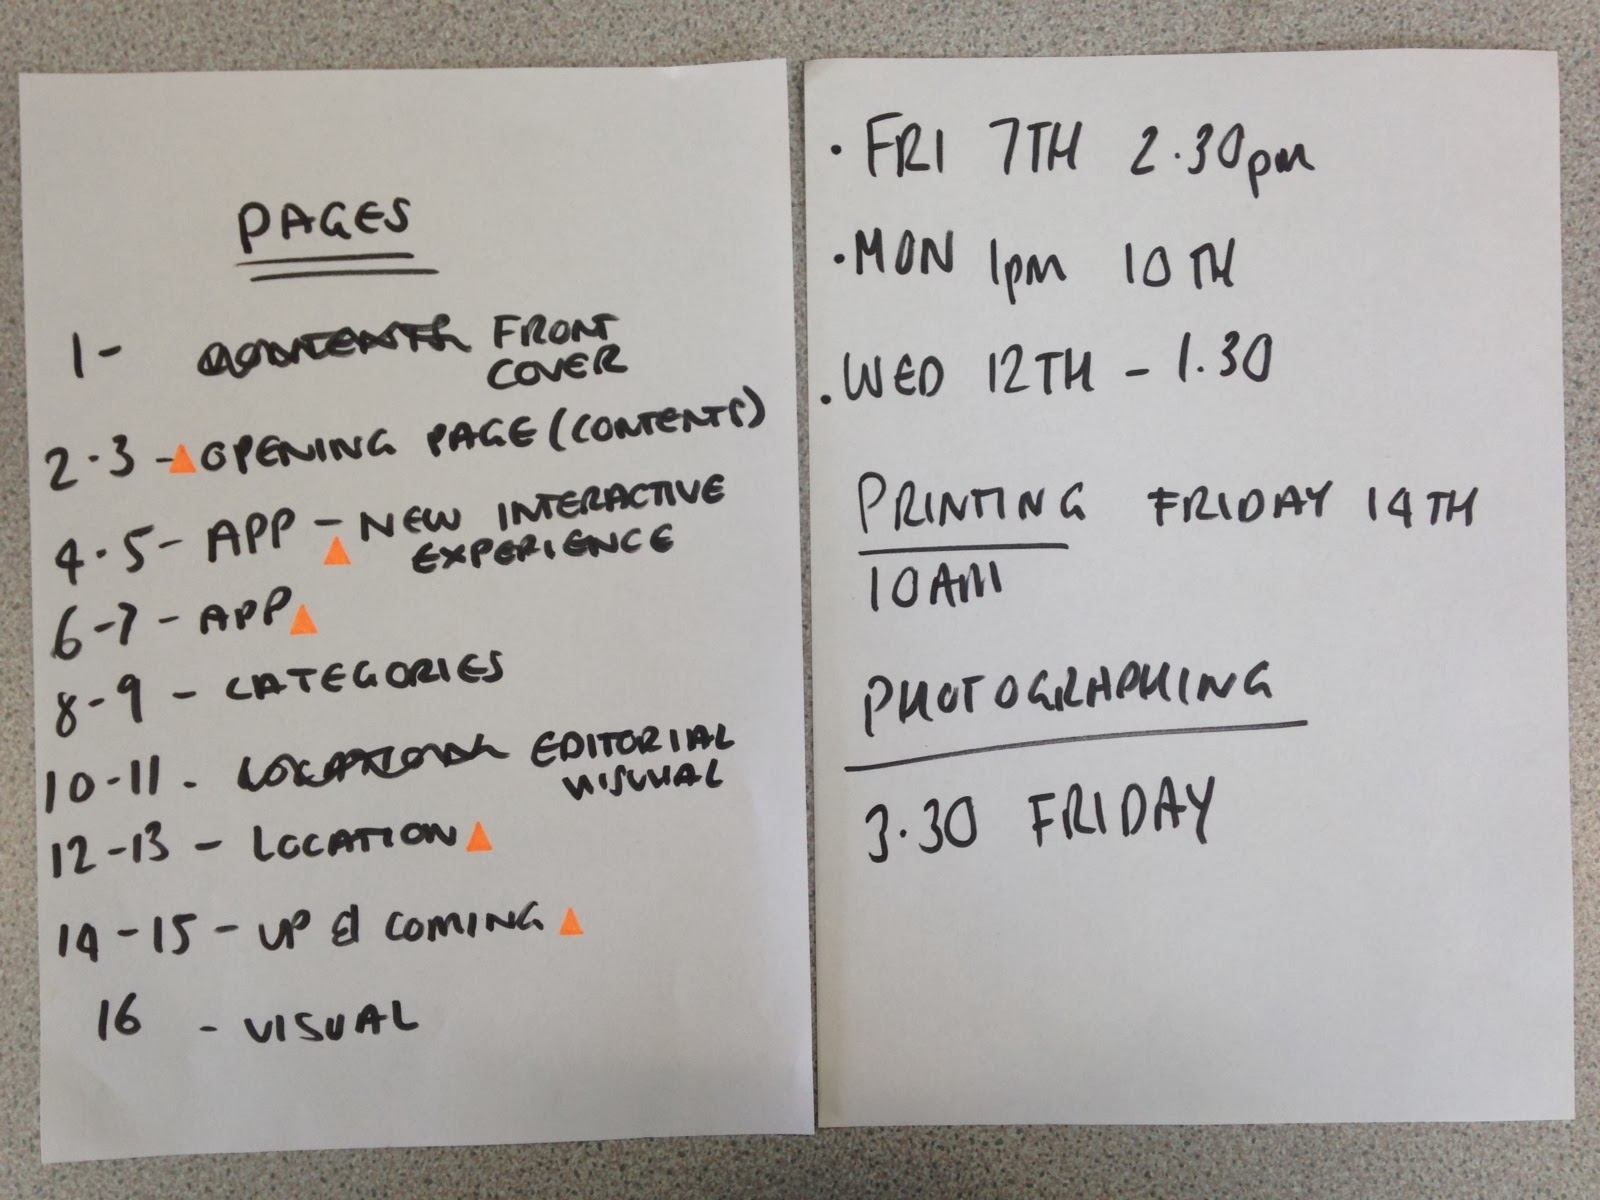 PAGES
1- FRONT
COVER
2.3 - OPENING PAGE (CONTENTS)
4.5 - APP - NEW INTERACTIVE
EXPERIENCE
6-7 - APP
8-9 - CATEGORIES
10-11. EDITORIAL
VISUAL
12-13 - LOCATION
14-15 - UP & COMING
16 - VISUAL
• FRI 7TH 2.30pm
• MON 1pm 10TH
• WED 12TH - 1.30
PRINTING FRIDAY 14TH
10AM
PHOTOGRAPHING
3.30 FRIDAY